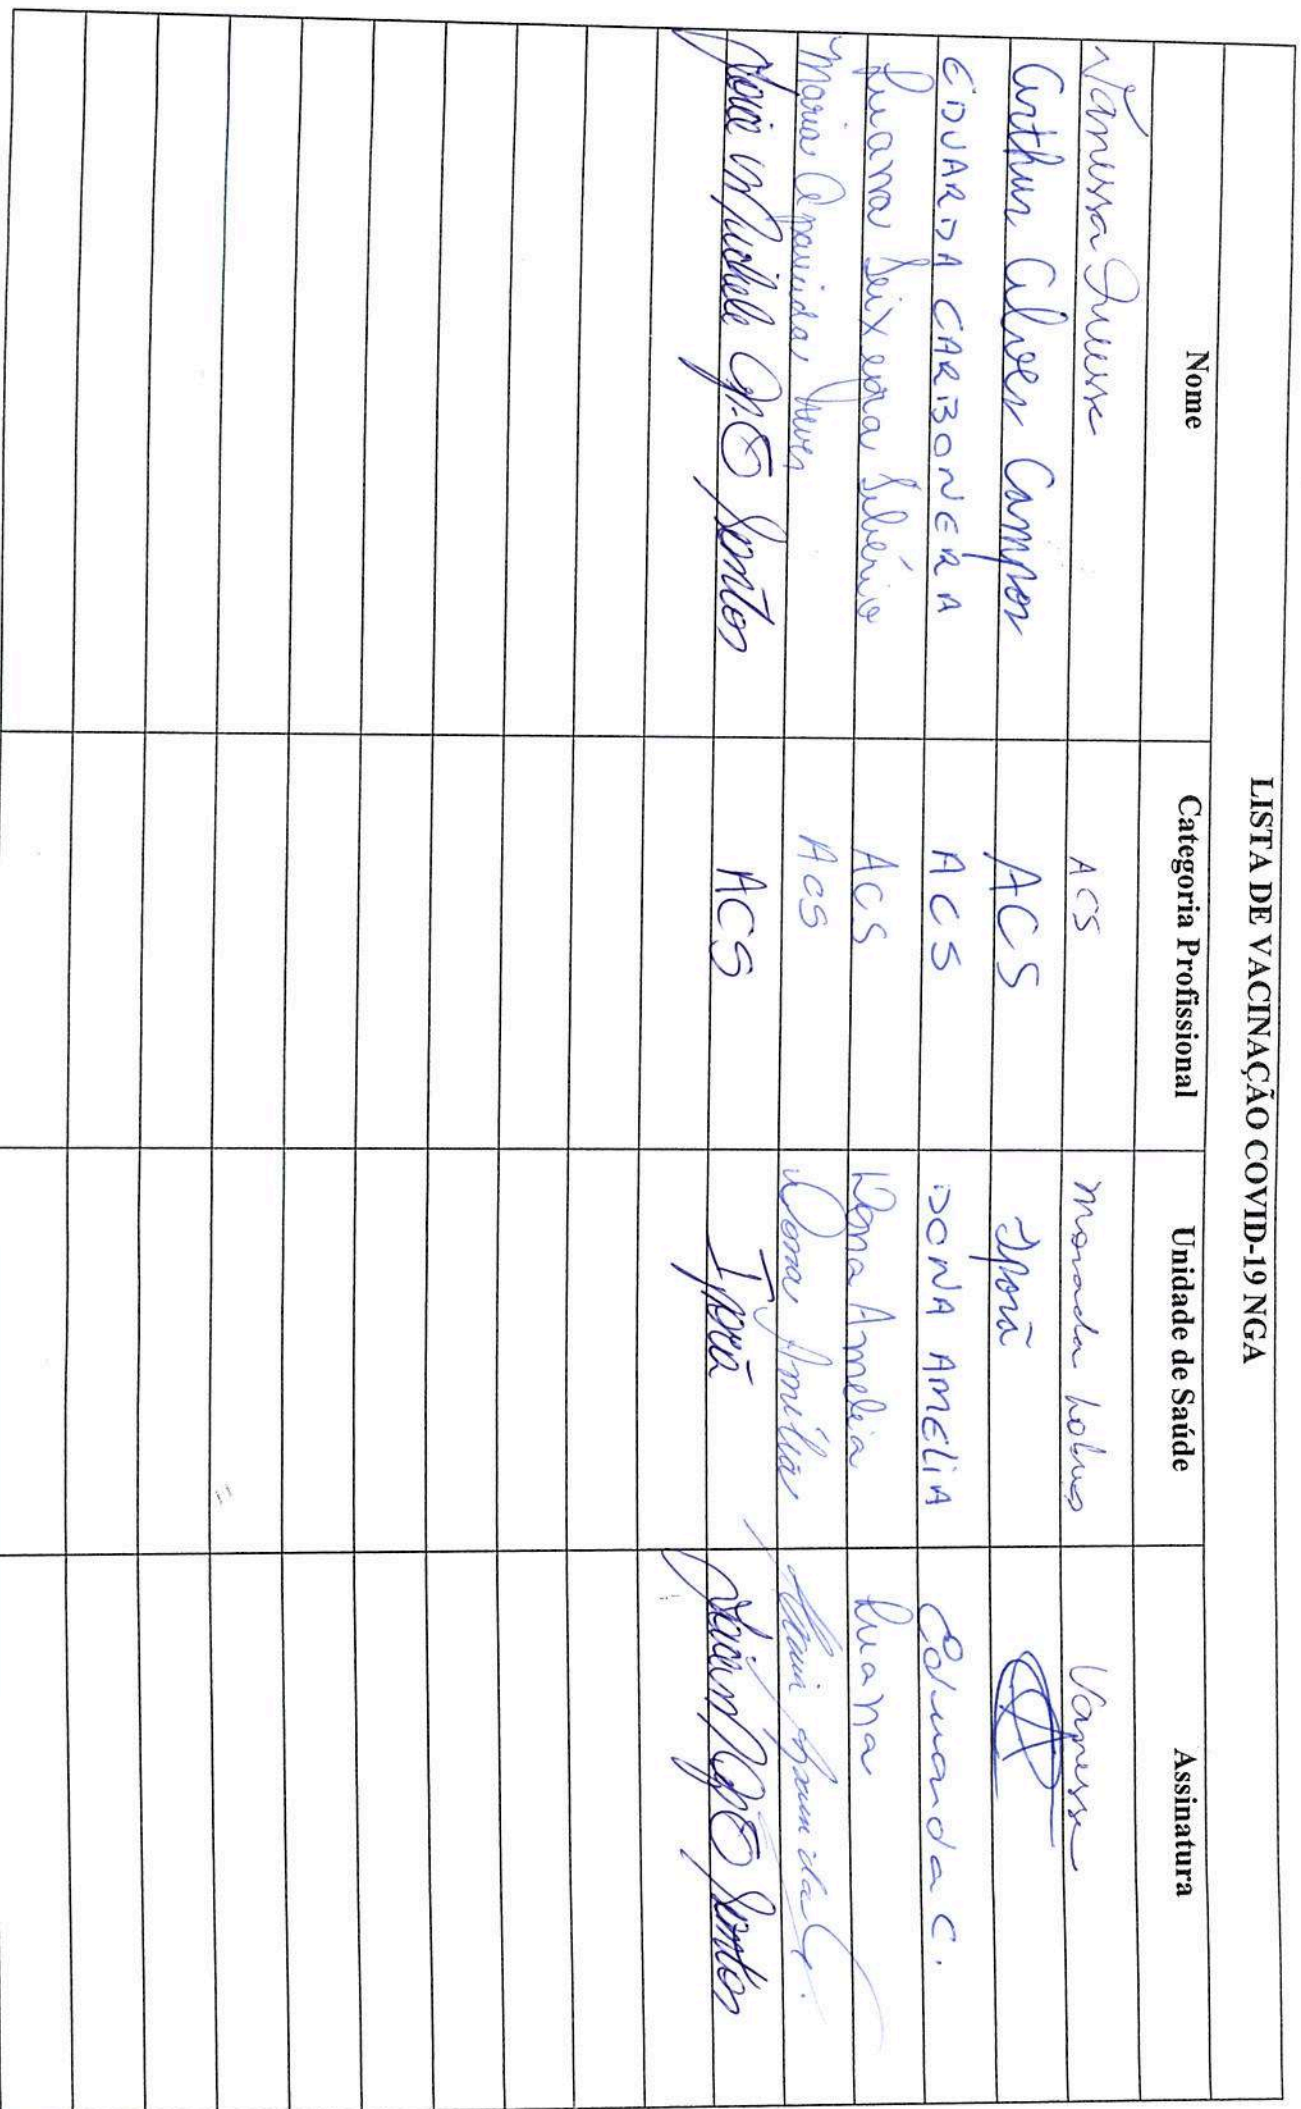 LISTA DE VACINAÇÃO COVID-19 NGA
Nome Categoria Profissional Unidade de Saúde Assinatura
Vanessa ACS Morada Vanessa
Arthur Alves Campos ACS Iporã
EDUARDA CARBONERA ACS DONA AMELIA Eduarda C.
Luana Teixeira Silvério ACS Dona Amelia Luana
Maria Aparecida Neves ACS Dona Amélia Maria Aparecida
Santos ACS Iporã Santos